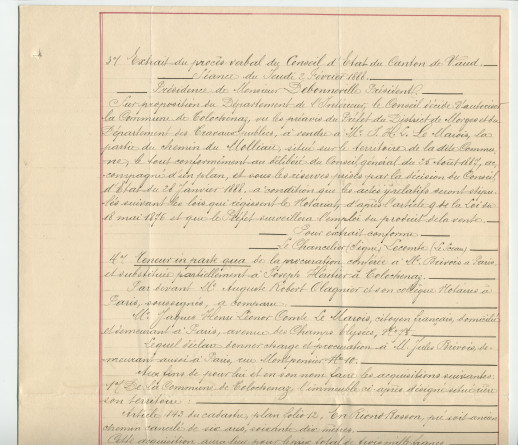 3º/ Extrait du procès verbal du Conseil d'Etat du Canton de Vaud.
Séance du Jeudi 2 Février 1888.
Présidence de Monsieur Debonneville Président.
Sur proposition du Département de l'Intérieur, le Conseil décide d'autoriser
la Commune de Tolochenaz, vu les préavis du Préfet du District de Morges et du
Département des Travaux publics, à vendre à Mr. J. H. L. Le Marois, la
partie du chemin du Molliau, situé sur le territoire de la dite Commu-
ne, le tout conformément au délibéré du Conseil général du 25 Août 1887, ac-
compagné d'un plan, et sous les réserves prises par la décision du Conseil
d'Etat du 28 Janvier 1888, à condition que les actes y relatifs seront stipu-
lés suivant les lois qui régissent le Notariat, d'après l'article 9 de la Loi du
18 mai 1876 et que le Préfet surveille l'emploi du produit de la vente.
Pour extrait conforme
Le Chancelier (signé) Lecomte
4º/ Teneur in parte qua de la procuration conférée à Mr. Brivois à Paris
et substituée partiellement à Joseph Héritier à Tolochenaz.
Par devant Me. Auguste Robert Clagnier et son collègue Notaires à
Paris, soussignés, a comparu:
Mr. Jaques Henri Léonor Comte Le Marois, citoyen français, domicilié
et demeurant à Paris, avenue des Champs Elysées,
Lequel déclare donner charge et procuration à M. Jules Brivois, de-
meurant aussi à Paris, rue Montpensier No. 10.
Aux fins de pour lui et en son nom faire les acquisitions suivantes:
1º/ De la Commune de Tolochenaz, l'immeuble ci-après désigné situé rière
son territoire:
Article 143 du cadastre, plan folio 12, En Riond Bosson, pré soit ancien
chemin cancelé de six ares, soixante dix mètres.
Cette acquisition aura lieu pour